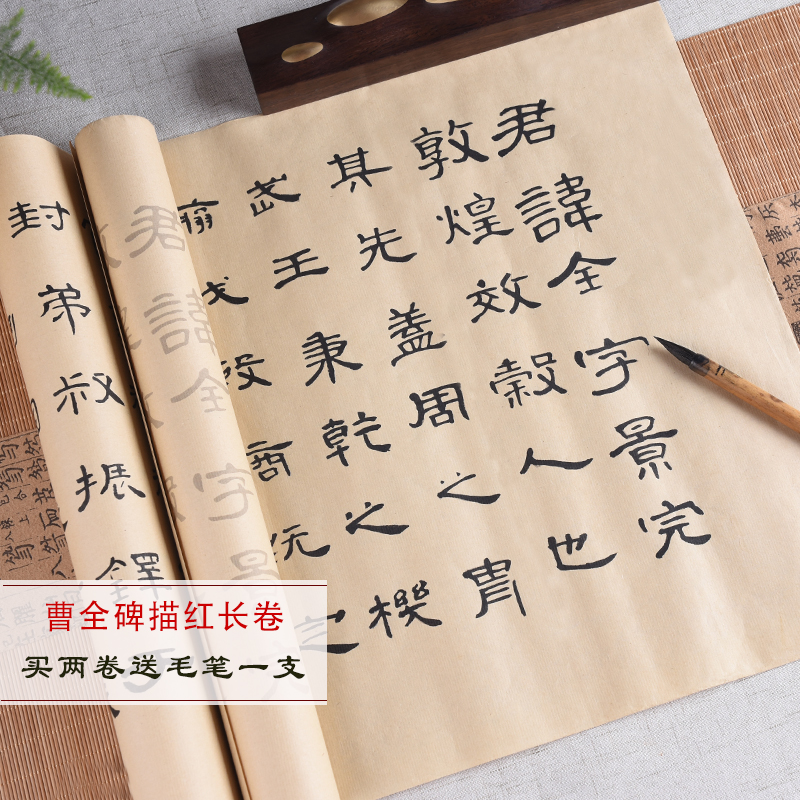 君諱全字景完
敦煌效穀人也
其先蓋周之胄
武王秉乾之機
翦伐殷商既
封弟叔振鐸于
曹全碑描红长卷
买两卷送毛笔一支